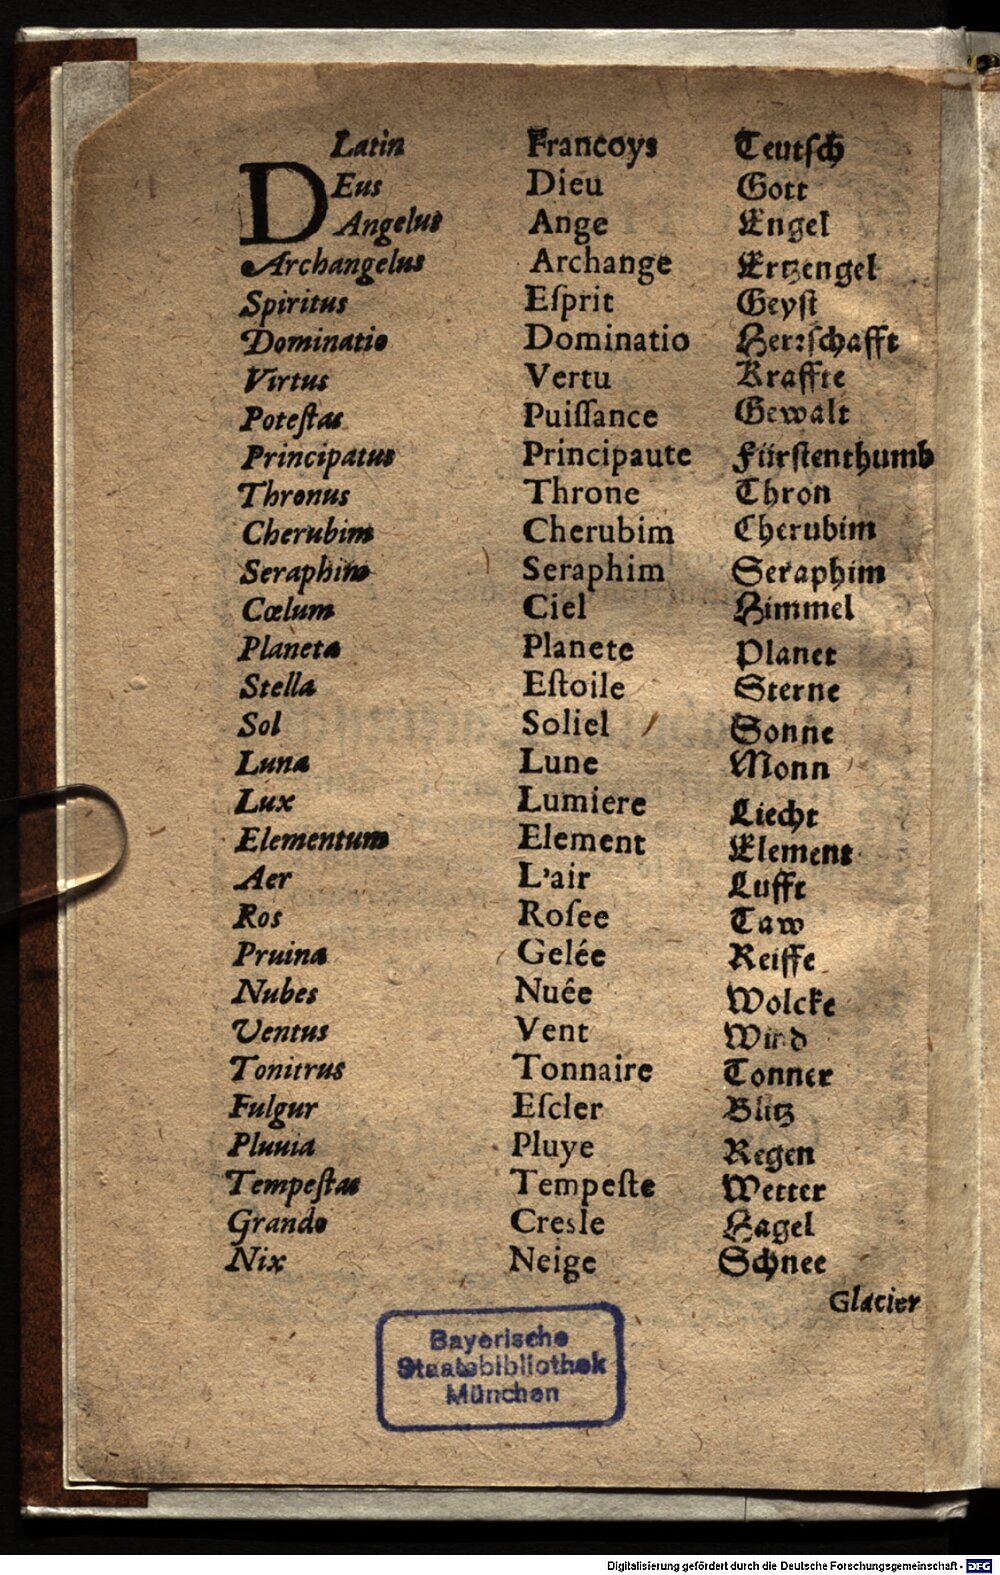 Latin Francoys Teutsch
DEus Dieu Gott
Angelus Ange Engel
Archangelus Archange Ertzengel
Spiritus Eſprit Geyſt
Dominatio Dominatio Herꝛſchafft
Virtus Vertu Kraffte
Poteſtas Puiſſance Gewalt
Principatus Principaute Fürſtenthumb
Thronus Throne Thron
Cherubim Cherubim Cherubim
Seraphim Seraphim Seraphim
Cœlum Ciel Himmel
Planeta Planete Planet
Stella Eſtoile Sterne
Sol Soliel Sonne
Luna Lune Monn
Lux Lumiere Liecht
Elementum Element Element
Aer L'air Lufft
Ros Roſee Taw
Pruina Gelée Reiffe
Nubes Nuêe Wolcke
Ventus Vent Wind
Tonitrus Tonnaire Tonner
Fulgur Eſcler Blitz
Pluuia Pluye Regen
Tempeſtas Tempeſte Wetter
Grando Cresle Hagel
Nix Neige Schnee
Glacier
Bayerische
Staatsbibliothek
München
Digitalisierung gefördert durch die Deutsche Forschungsgemeinschaft - DFG